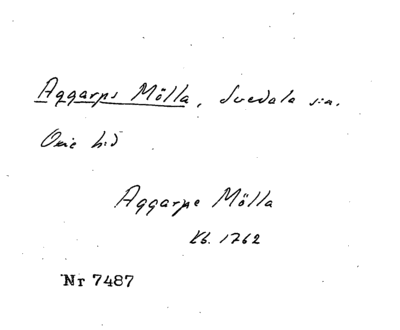 Aggarps Mölla, Svedala sn.
Oxie hd
Aggarpe Mölla
Kb. 1762
Nr 7487